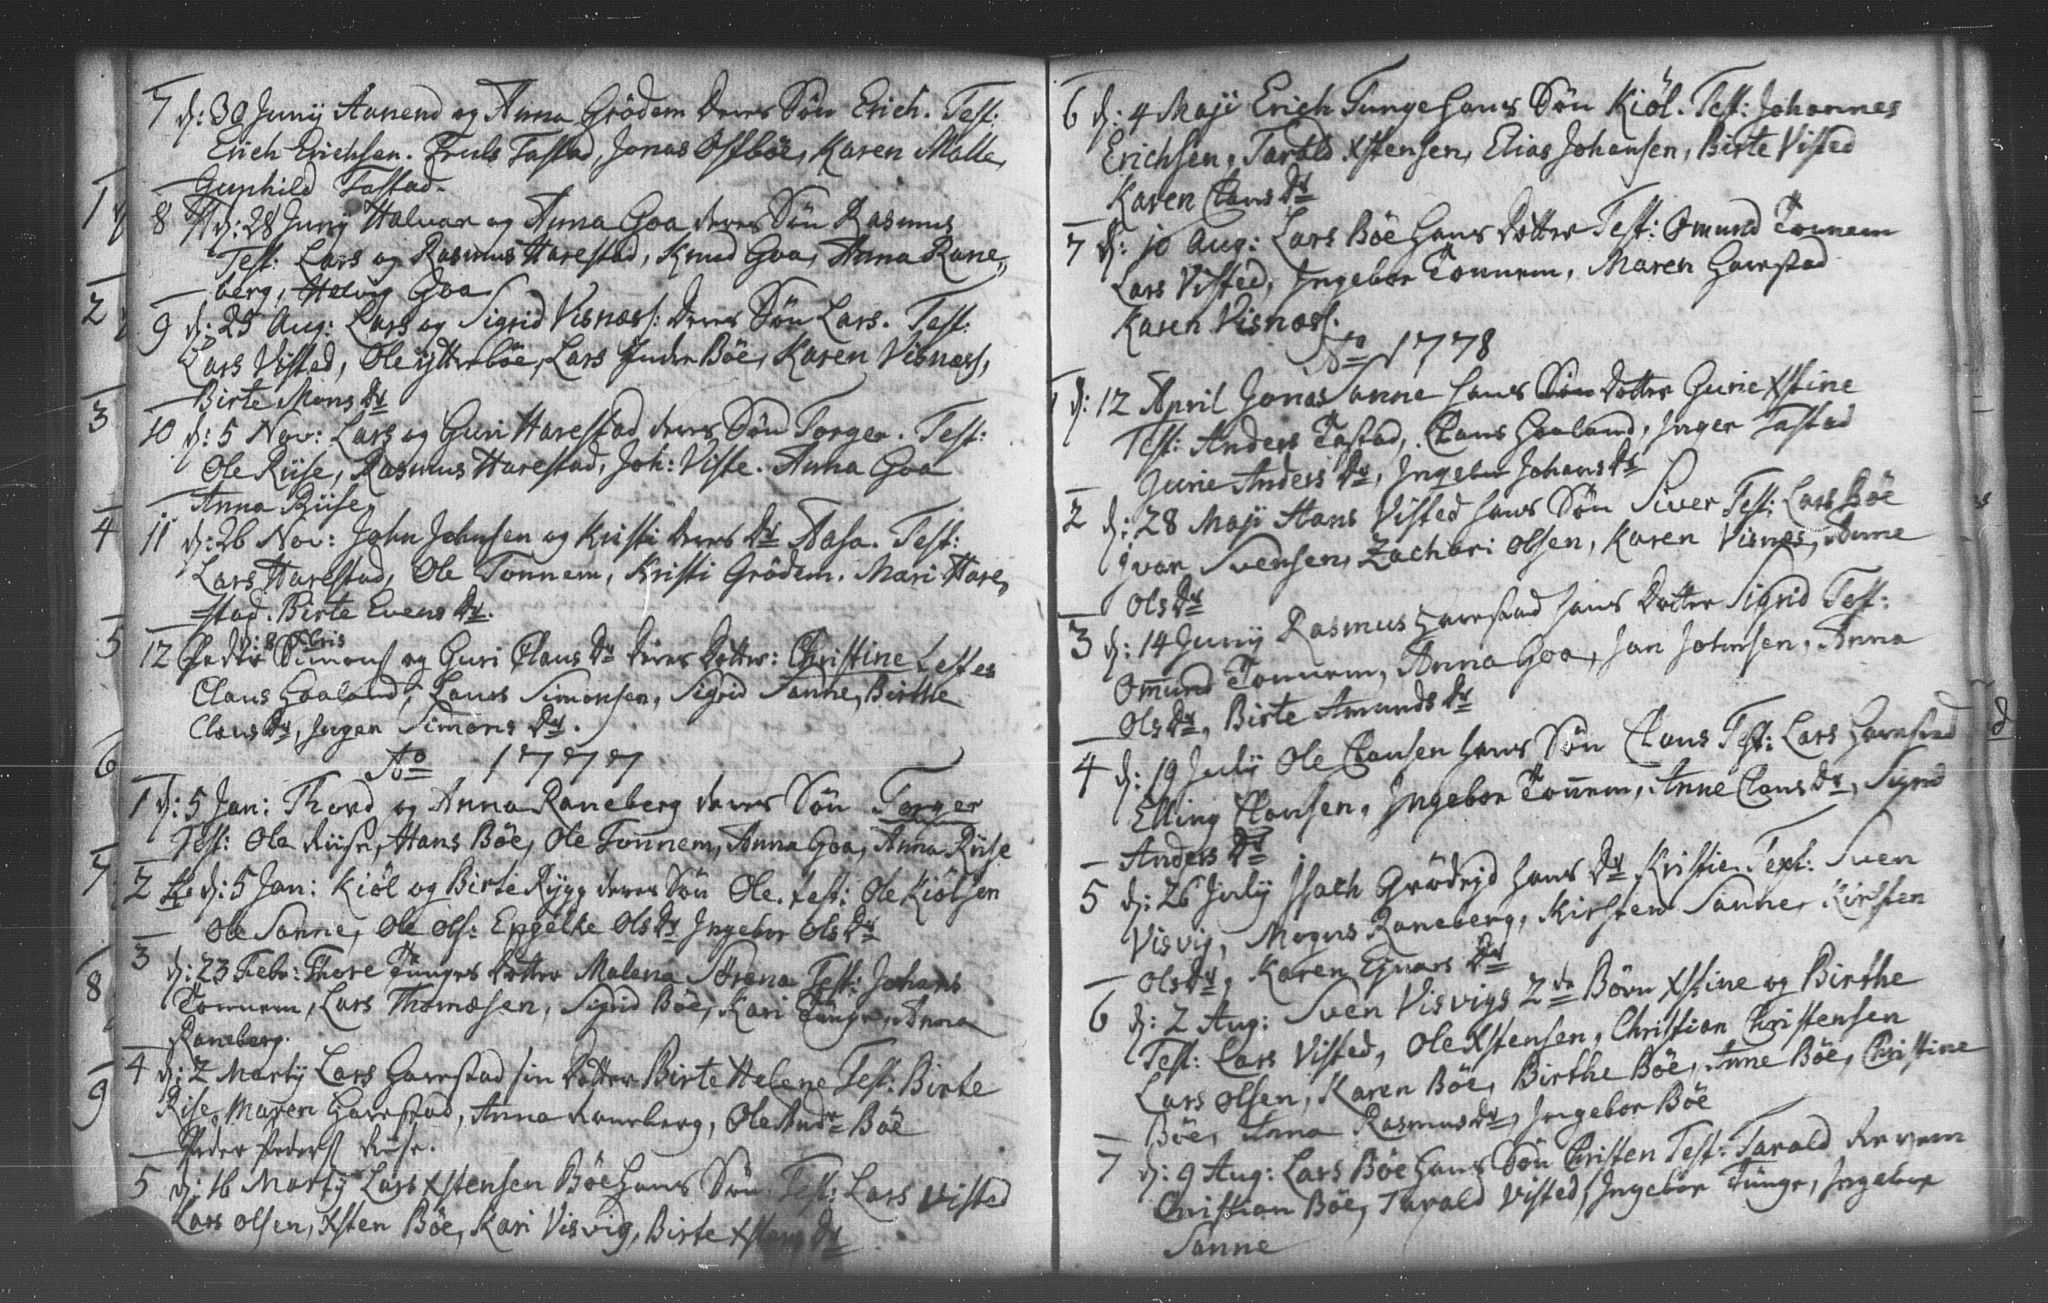 7 d: 30 Junij Aanend og Anna Grödem deres Sön Erich. Test:
Erich Erichsen. Truls Tastad, Jonas Ostböe, Karen Malle,
Gunhild Tastad.
8 d: 28 Junij Halvar og Anna Goa deres Sön Rasmus
Test: Lars og Rasmus Harestad, Knud Goa, Anna Rane,
berg, Helvig Goa
9 d: 25 Aug: Lars og Sigrid Visnæss: deres Sön Lars. Test:
Lars Visted, Ole ÿtterböe, Lars Inder Böe, Karen Visnæss,
Birte Mons Dr
10 d: 5 Nov: Lars og Guri Harestad deres Sön Torger. Test:
Ole Riise, Rasmus Harestad, Joh: Viste. Anna Goa
Anna Riise,
11 d: 26 Nov: John Johnsen og Kristi deres Dr Aasa. Test:
Lars Harestad, Ole Tonnem, Kristi Grödem. Mari Hare,
stad. Birte Evens Dr.
d: 8 Xbris
12 Peder Simons og Guri Claus Dr deres Dotter: Christine Testes
Claus Haaland, Laurs Simonsen, Sigrid Sanne, Birthe
Claus Dr, Inger Simons Dr.
Ao 1777
1 d: 5 Jan: Thord og Anna Raneberg deres Sön Torger
Test: Ole Riise, Hans Böe, Ole Tonnem, Anna Goa, Anna Riise
2 d: 5 Jan: Kiöl og Birte Rygg deres Sön Ole. test: Ole Kiölsen
Ole Sanne, Ole Ols: Engelke Ols Dr Ingebor Ols Dr
3 d: 23 Febr: Thore Tunges Dotter Malena Serena Test: Johans
Tonnem, Lars Thomæsen, Sigrid Böe, Kari Tunge, Anna
Raneberg.
4 d: 2 Martij Lars Harestad sin Dotter Birte Helene Test: Birte
Rise, Maren Harestad, Anna Raneberg, Ole Böe
Peder Peders Riise.
5 d: 16 Martij Lars Xstensen Böe hans Sön. Test: Lars Visted
Lars Olsen, Xsten Böe, Kari Visvig, Birte Dr
6 d: 4 Maji Erich Tunge hans Sön Kiöl. Test: Johannes
Erichsen, Tarald Xstensen, Elias Johansen, Birte Visted
Karen Claus Dr
7 d: 10 Aug: Lars Böe hans Dotter Test: Omund Tonnem
Lars Visted, Ingebor Tonnem, Maren Harestad
Karen Visnæss.
Ao 1778
1 d: 12 April Jonas Sanne hans Dotter Gurie Xstine
Test: Anders Tastad, Claus Haaland, Inger Tastad
Jurie Anders Dr, Ingebor Johans Dr
2 d: 28 Maji Hans Visted hans Sön Siver Test: Lars Böe
Ivar Svensen, Zachari Olsen, Karen Visnæs, Anne
Ols Dr
3 d: 14 Junij Rasmus Harestad hans Dotter Sigrid Test:
Omund Tonnem, Anna Goa, Jan Johnsen, Anna
Ols Dr, Birte Amunds Dr
4 d: 19 Julij Ole Clausen hans Sön Claus Test: Lars Harestad
Elling Clausen, Ingebor Tonnem, Anne Claus Dr, Sigrid
Anders Dr
5 d: 26 Julij Isach Grödejd hans Dr Kristie. Text: Sven
Visvig, Mogns Raneberg, Kirsten Sanne, Kirsten
Ols Dr, Karen Ejvars Dr
6 d: 2 Aug: Sven Visvigs 2de Börn Xstine og Birthe
Test: Lars Visted, Ole Xstensen, Christian Christensen
Lars Olsen, Karen Böe, Birthe Böe, Anne Böe, Christine
Böe, Anna Rasmus Dr, Ingebor Böe
7 d: 9 Aug: Lars Böe hans Sön Christen Test: Tarald Revem
Christian Böe, Tarald Visted, Ingebor Tunge, Ingebor
Sanne
1
2
3
4
5
6
7
8
9